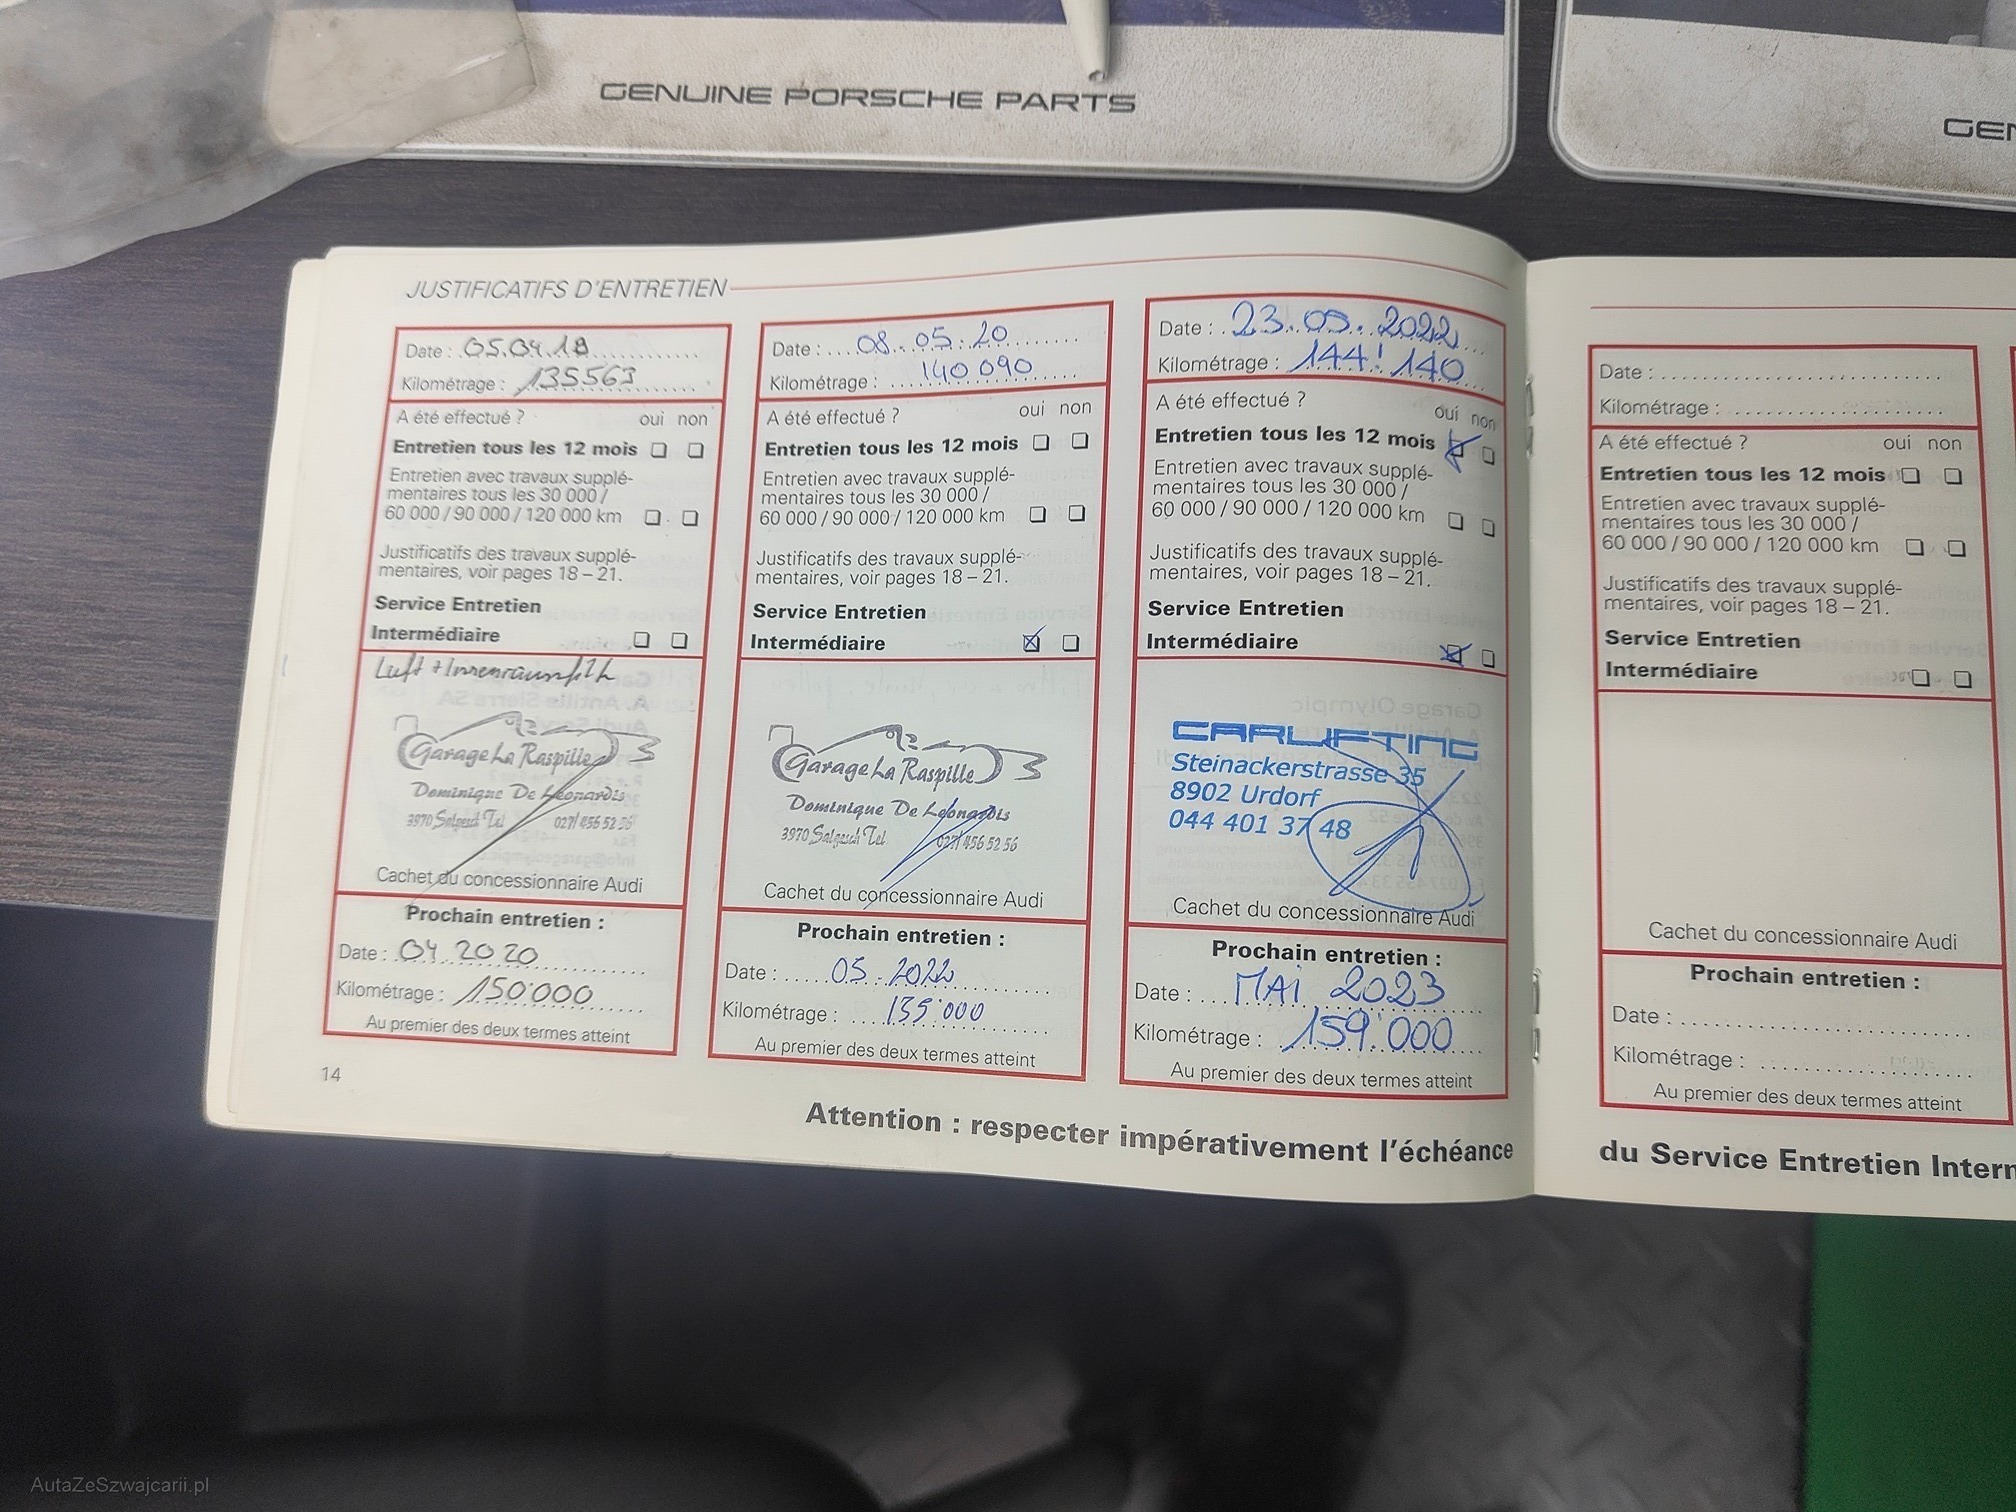 GENUINE PORSCHE PARTS
GEN
JUSTIFICATIFS D'ENTRETIEN
Date : 05.04.18
Kilométrage : 135563
A été effectué ? oui non
Entretien tous les 12 mois
Entretien avec travaux supplé-
mentaires tous les 30 000 /
60 000 / 90 000 / 120 000 km
Justificatifs des travaux supplé-
mentaires, voir pages 18 – 21.
Service Entretien
Intermédiaire
Luft + Innenraumfilt
Garage La Raspille
Dominique De Leonardis
3970 Salgesch Tel 027/ 456 52 56
Cachet du concessionnaire Audi
Prochain entretien :
Date : 04 2020
Kilométrage : 150'000
Au premier des deux termes atteint
14
Date : 08.05.20
Kilométrage : 140 090
A été effectué ? oui non
Entretien tous les 12 mois
Entretien avec travaux supplé-
mentaires tous les 30 000 /
60 000 / 90 000 / 120 000 km
Justificatifs des travaux supplé-
mentaires, voir pages 18 – 21.
Service Entretien
Intermédiaire
Garage La Raspille
Dominique De Leonardis
3970 Salgesch Tel 027/ 456 52 56
Cachet du concessionnaire Audi
Prochain entretien :
Date : 05.2022
Kilométrage : 155'000
Au premier des deux termes atteint
Date : 23.05.2022
Kilométrage : 144'140
A été effectué ? oui non
Entretien tous les 12 mois
Entretien avec travaux supplé-
mentaires tous les 30 000 /
60 000 / 90 000 / 120 000 km
Justificatifs des travaux supplé-
mentaires, voir pages 18 – 21.
Service Entretien
Intermédiaire
CARLIFTING
Steinackerstrasse 35
8902 Urdorf
044 401 37 48
Cachet du concessionnaire Audi
Prochain entretien :
Date : MAI 2023
Kilométrage : 159'000
Au premier des deux termes atteint
Attention : respecter impérativement l'échéance
Date :
Kilométrage :
A été effectué ? oui non
Entretien tous les 12 mois
Entretien avec travaux supplé-
mentaires tous les 30 000 /
60 000 / 90 000 / 120 000 km
Justificatifs des travaux supplé-
mentaires, voir pages 18 – 21.
Service Entretien
Intermédiaire
Cachet du concessionnaire Audi
Prochain entretien :
Date :
Kilométrage :
Au premier des deux termes atteint
du Service Entretien Intern
AutaZeSzwajcarii.pl